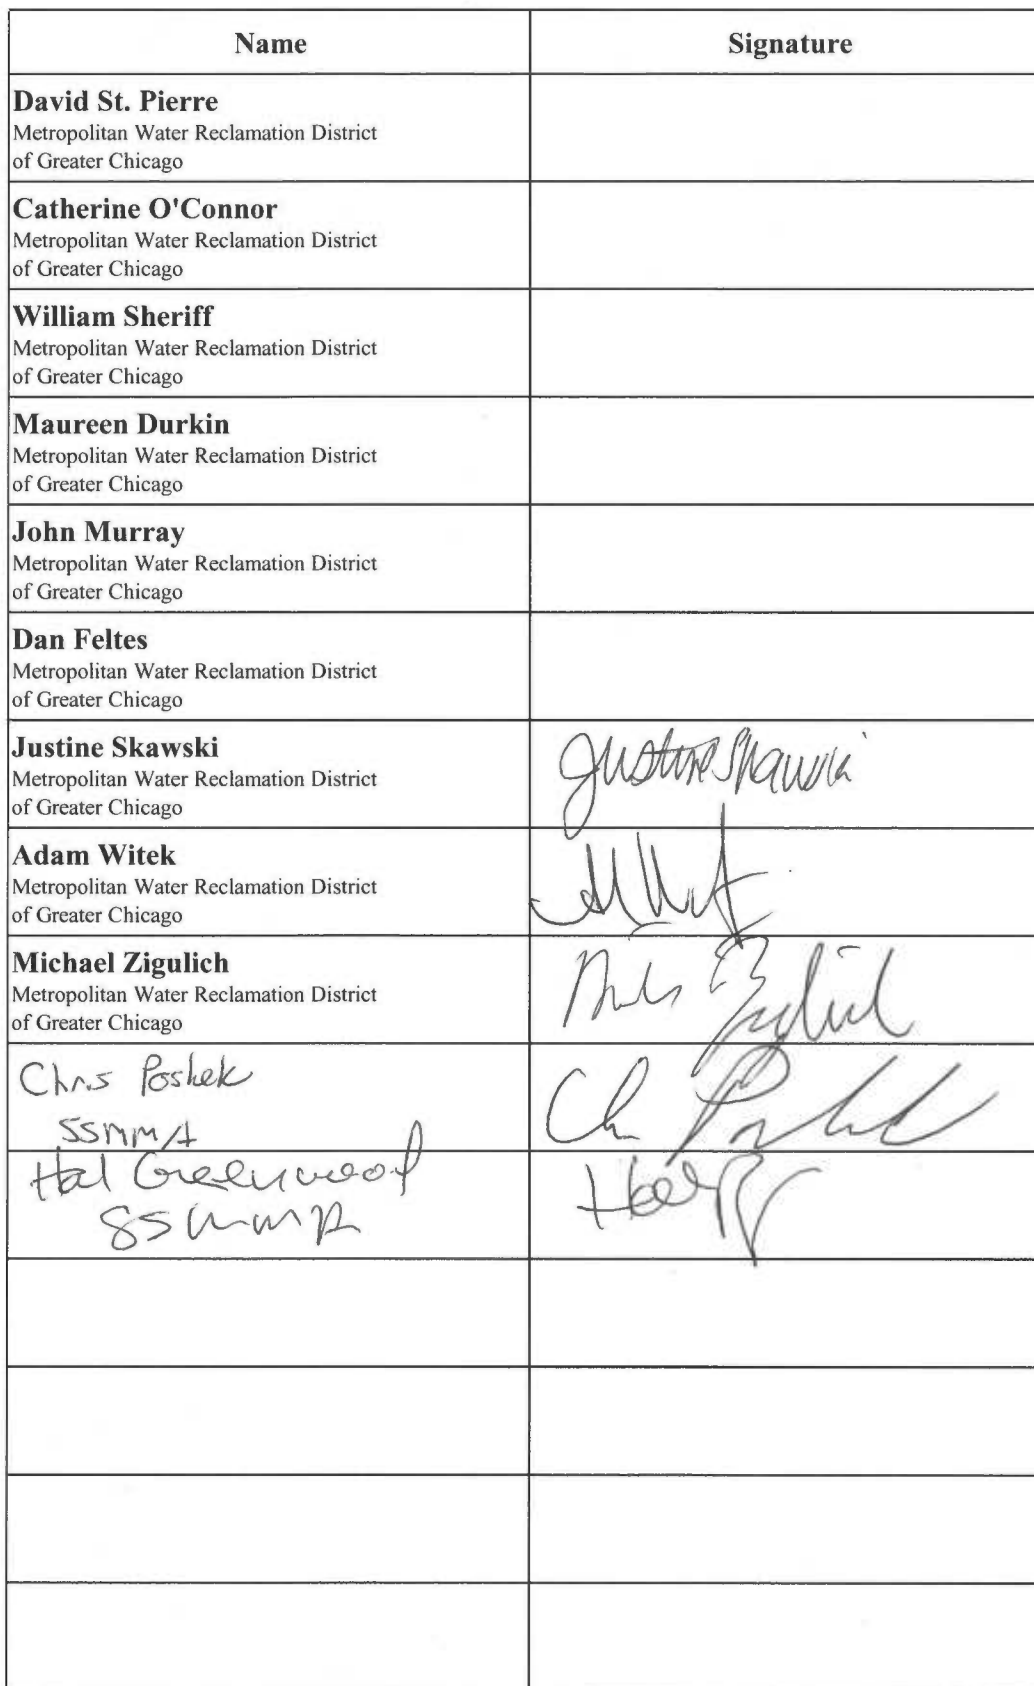 Name
Signature
David St. Pierre
Metropolitan Water Reclamation District
of Greater Chicago
Catherine O'Connor
Metropolitan Water Reclamation District
of Greater Chicago
William Sheriff
Metropolitan Water Reclamation District
of Greater Chicago
Maureen Durkin
Metropolitan Water Reclamation District
of Greater Chicago
John Murray
Metropolitan Water Reclamation District
of Greater Chicago
Dan Feltes
Metropolitan Water Reclamation District
of Greater Chicago
Justine Skawski
Metropolitan Water Reclamation District
of Greater Chicago
Justine Skawski
Adam Witek
Metropolitan Water Reclamation District
of Greater Chicago
Michael Zigulich
Metropolitan Water Reclamation District
of Greater Chicago
Chris Poshek
SSMMA
Hal Greenwood
SSMMA